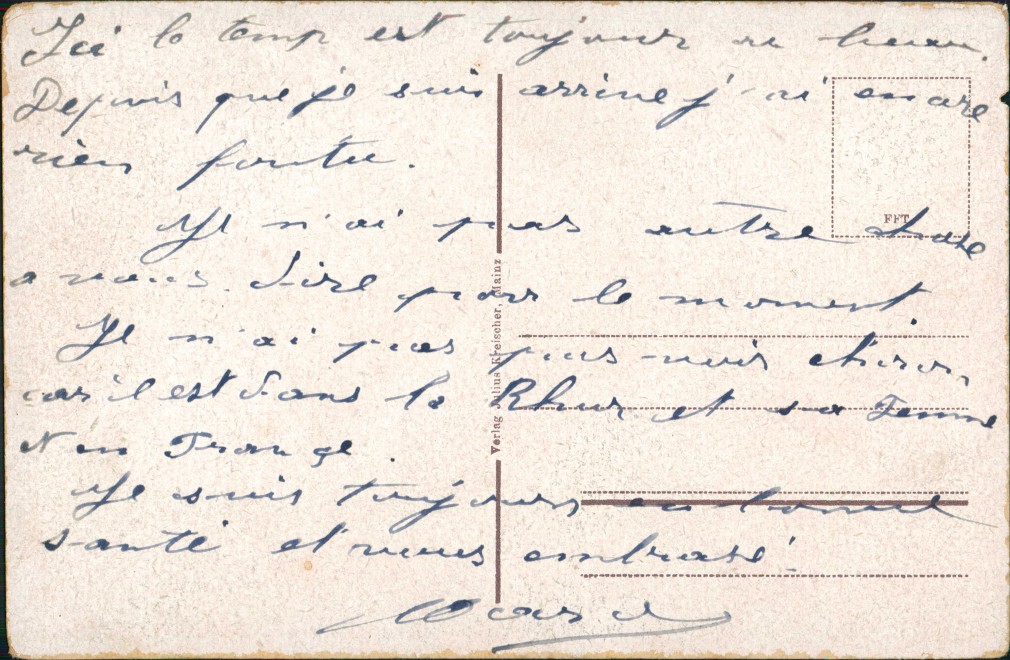 Ici le temp est toujour au beau.
Depuis que je suis arrive j'ai encore
rien foutu.
Je n'ai pas autre chose
a vous dire pour le moment.
Je n'ai pas puis voir
car il est dans la Rhur et sa femme
en France.
Je suis toujours en bonne
santé et vous embrasé
FFT
Verlag Julius Kreischer, Mainz